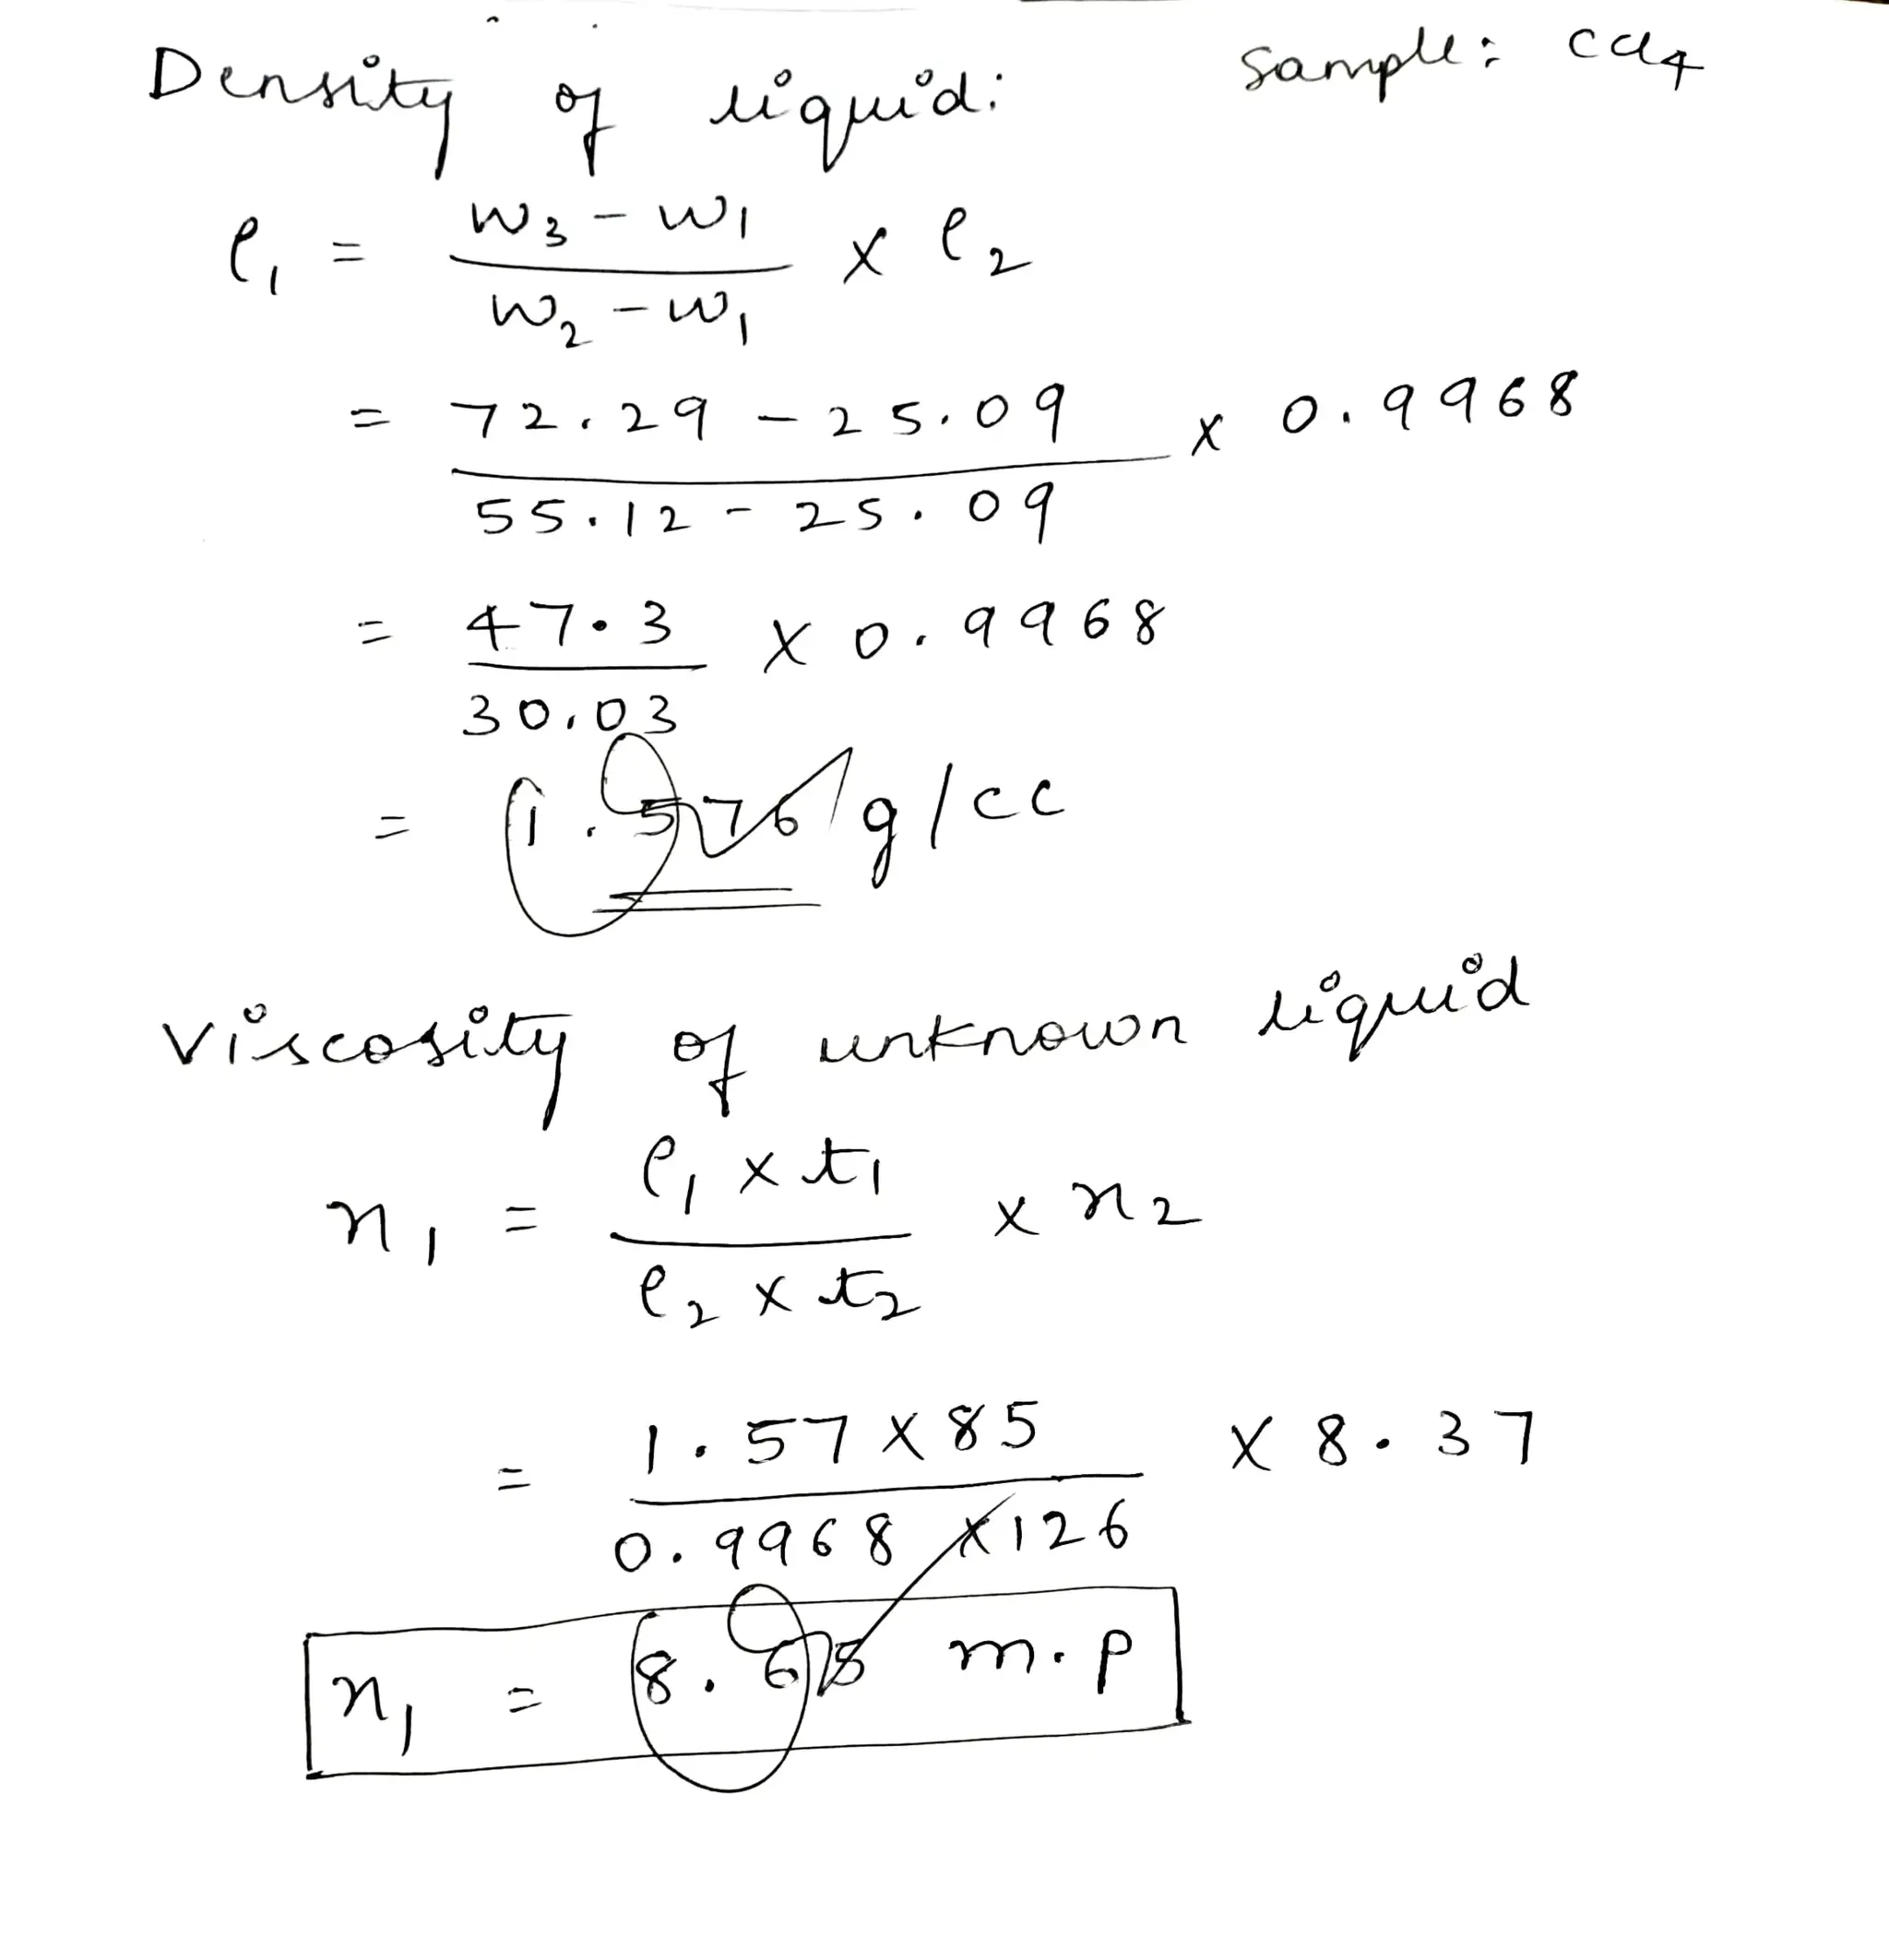 Density of liquid: Sample: CCl4
ρ1 = w3 - w1 / w2 - w1 × ρ2
= 72.29 - 25.09 / 55.12 - 25.09 × 0.9968
= 47.3 / 30.03 × 0.9968
= 1.576 g/cc
Viscosity of unknown liquid
η1 = ρ1 × t1 / ρ2 × t2 × η2
= 1.57 × 85 / 0.9968 × 126 × 8.37
η1 = 8.65 m.p